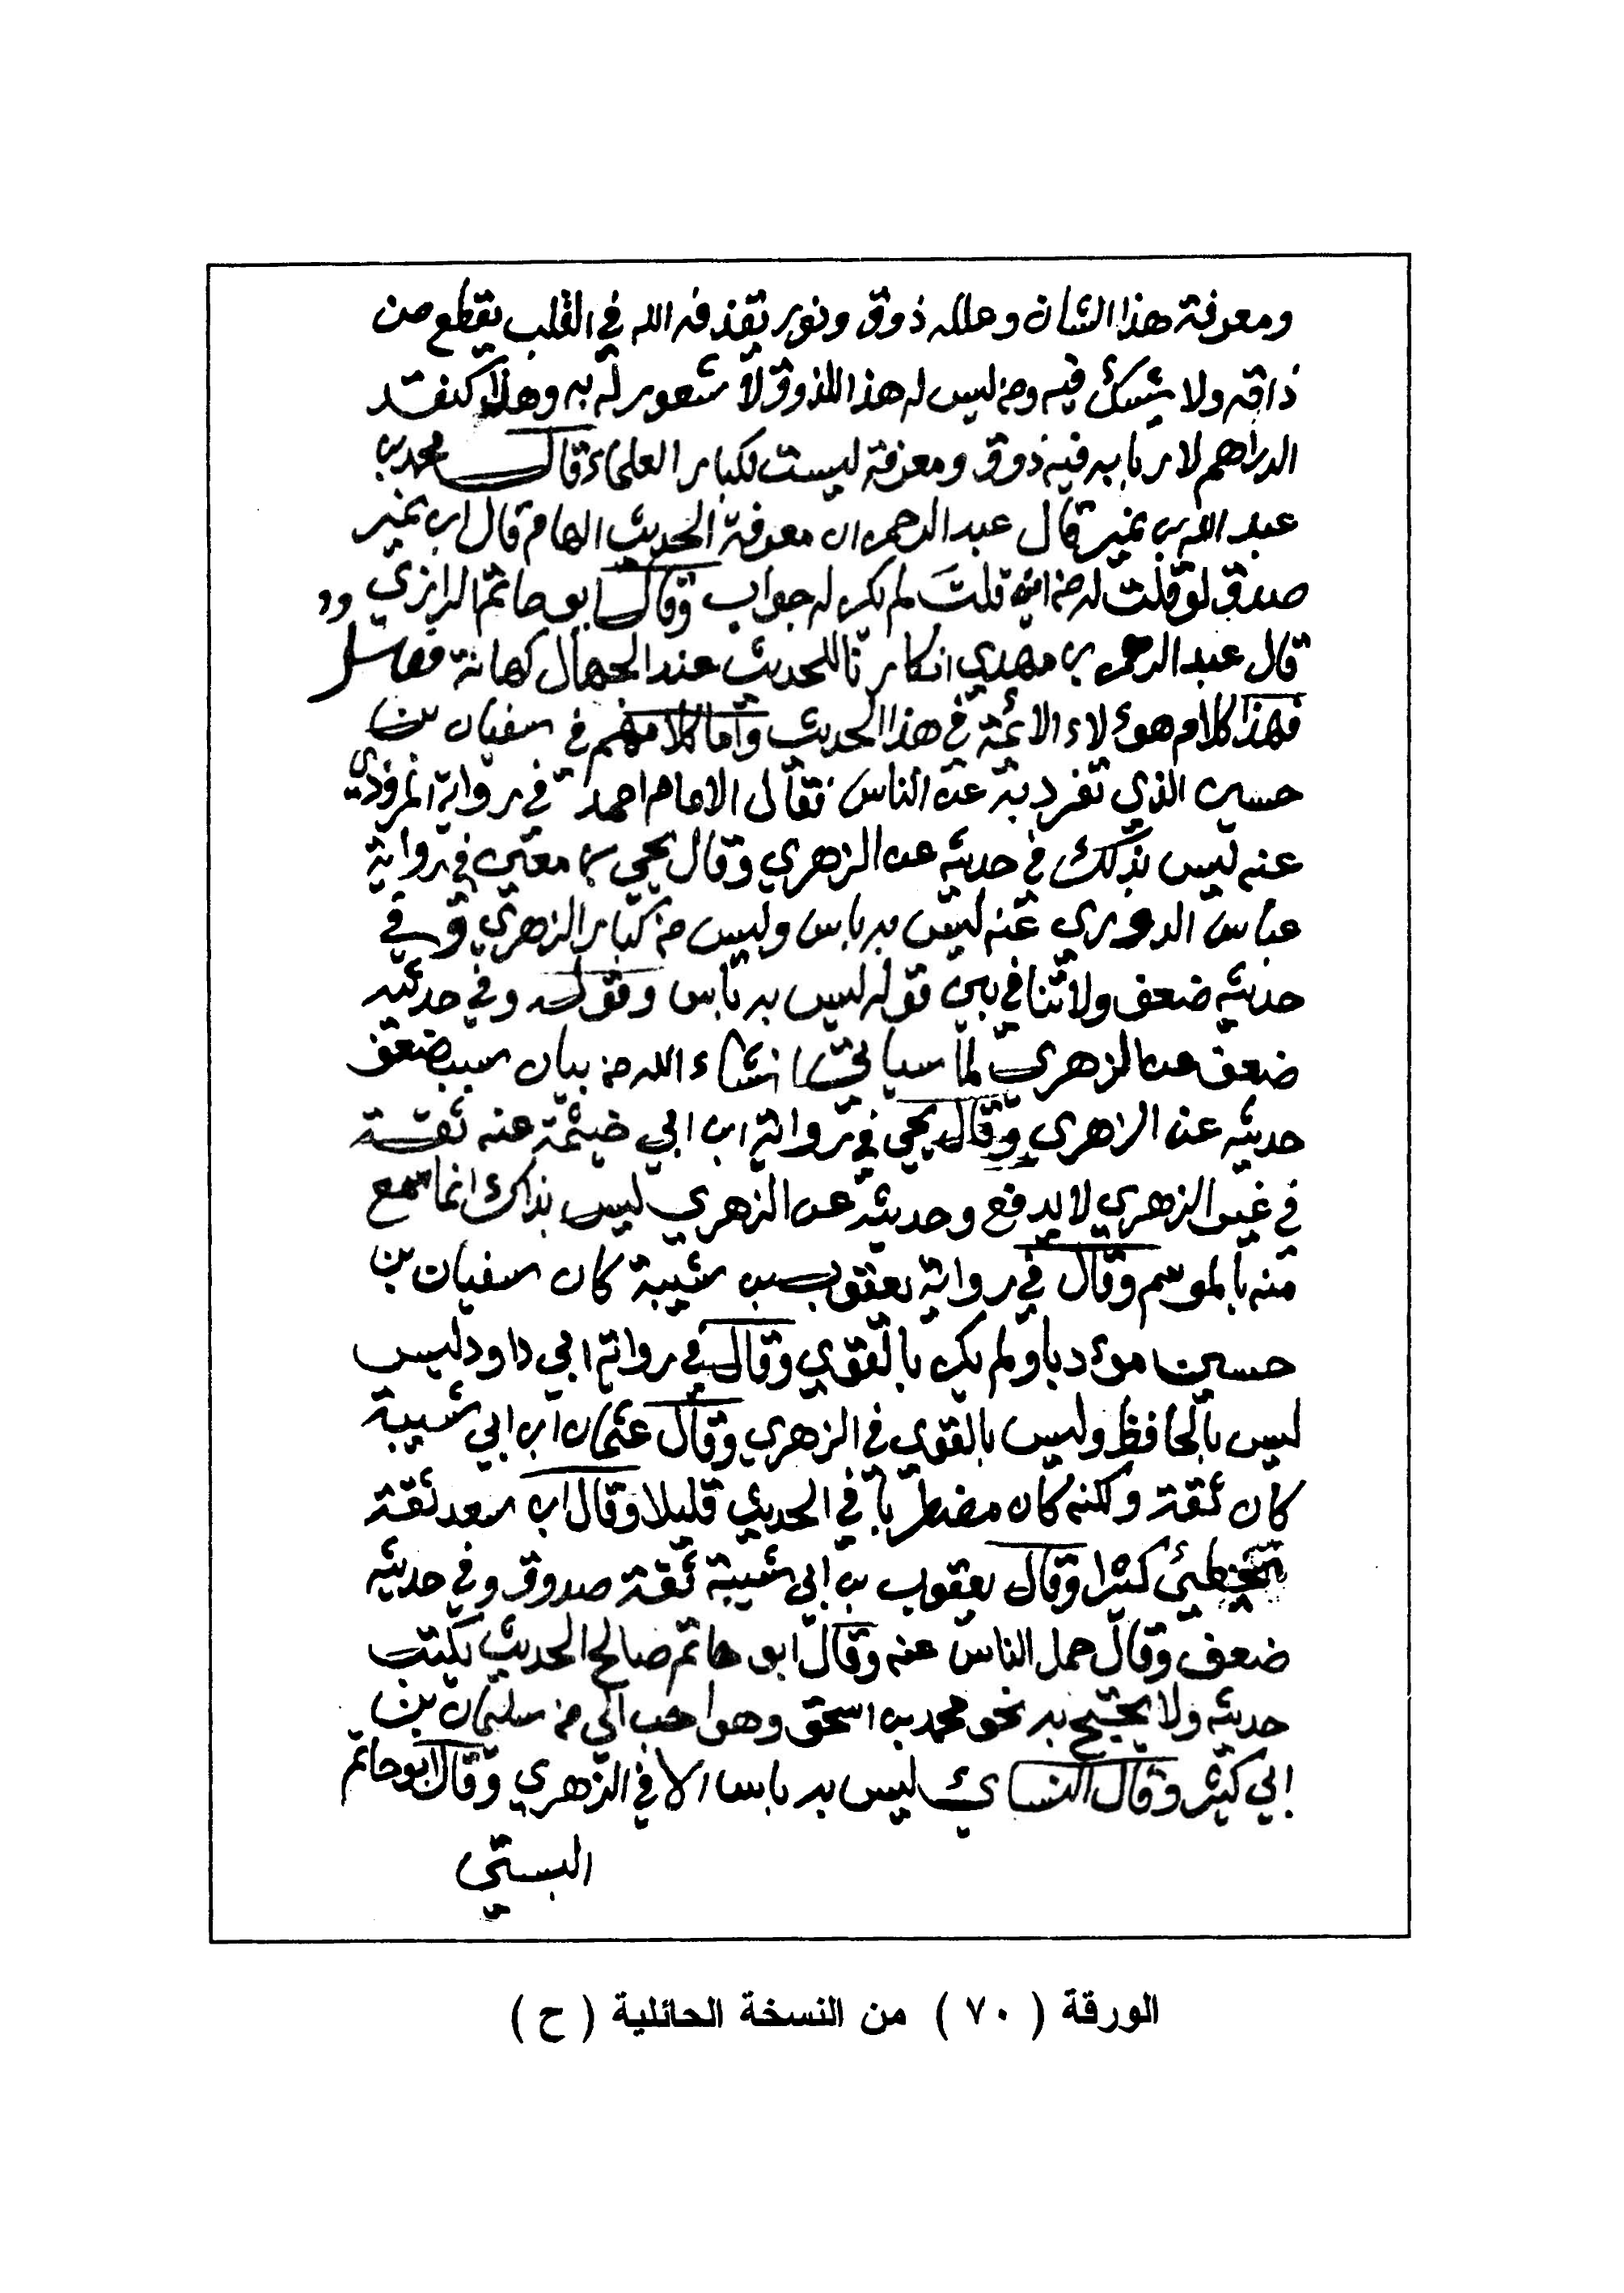 ومعرفة هذا الشان وعلله ذوق ونور يقذفه الله في القلب يقطع من
ذاقه ولا يشك فيه ومن ليس له هذا الذوق لا شعور له به وهذا كنقد
الدراهم لاربابه فيه ذوق ومعرفة ليست لكبار العلماء قال محمد بن
عبد الله بن نمير قال عبد الرحمن ان معرفة الحديث الهام قال ابن نمير
صدق لو قلت له من اين قلت لم يكن له جواب وقال ابو حاتم الرازي
قال عبد الرحمن بن مهدي انكارنا للحديث عند الجهال كهانة
فهذا كلام هؤلاء الائمة في هذا الحديث واما كلامهم في سفيان بن
حسين الذي تفرد به عن الناس فقال الامام احمد في رواية المروذي
عنه ليس بذلك في حديثه عن الزهري وقال يحيى بن معين في رواية
عباس الدوري عنه ليس به باس وليس من كبار الزهري وفي
حديثه ضعف ولا تنافي بين قوله ليس به باس وقوله وفي حديثه
ضعف عن الزهري لما سياتي انشاء الله من بيان سبب ضعف
حديثه عن الزهري وقال يحيى في رواية ابن ابي خيثمة عنه ثقة
في غير الزهري لا يدفع وحديثه عن الزهري ليس بذاك انما سمع
منه بالموسم وقال في رواية يعقوب بن شيبة كان سفيان بن
حسين مؤدبا ولم يكن بالقوي وقال في رواية ابي داود ليس
ليس بالحافظ وليس بالقوي في الزهري وقال عثمان ابن ابي شيبة
كان ثقة ولكنه كان مضطربا في الحديث قليلا وقال ابن سعد ثقة
يخطئ كثيرا وقال يعقوب بن ابي شيبة ثقة صدوق وفي حديثه
ضعف وقال حمل الناس عنه وقال ابو حاتم صالح الحديث يكتب
حديثه ولا يحتج به نحو محمد بن اسحق وهو احب الي من سليمان بن
ابي كثير وقال النساي ليس به باس الا في الزهري وقال ابو حاتم
البستي
الورقة ( ٧٠ ) من النسخة الحائلية ( ح )